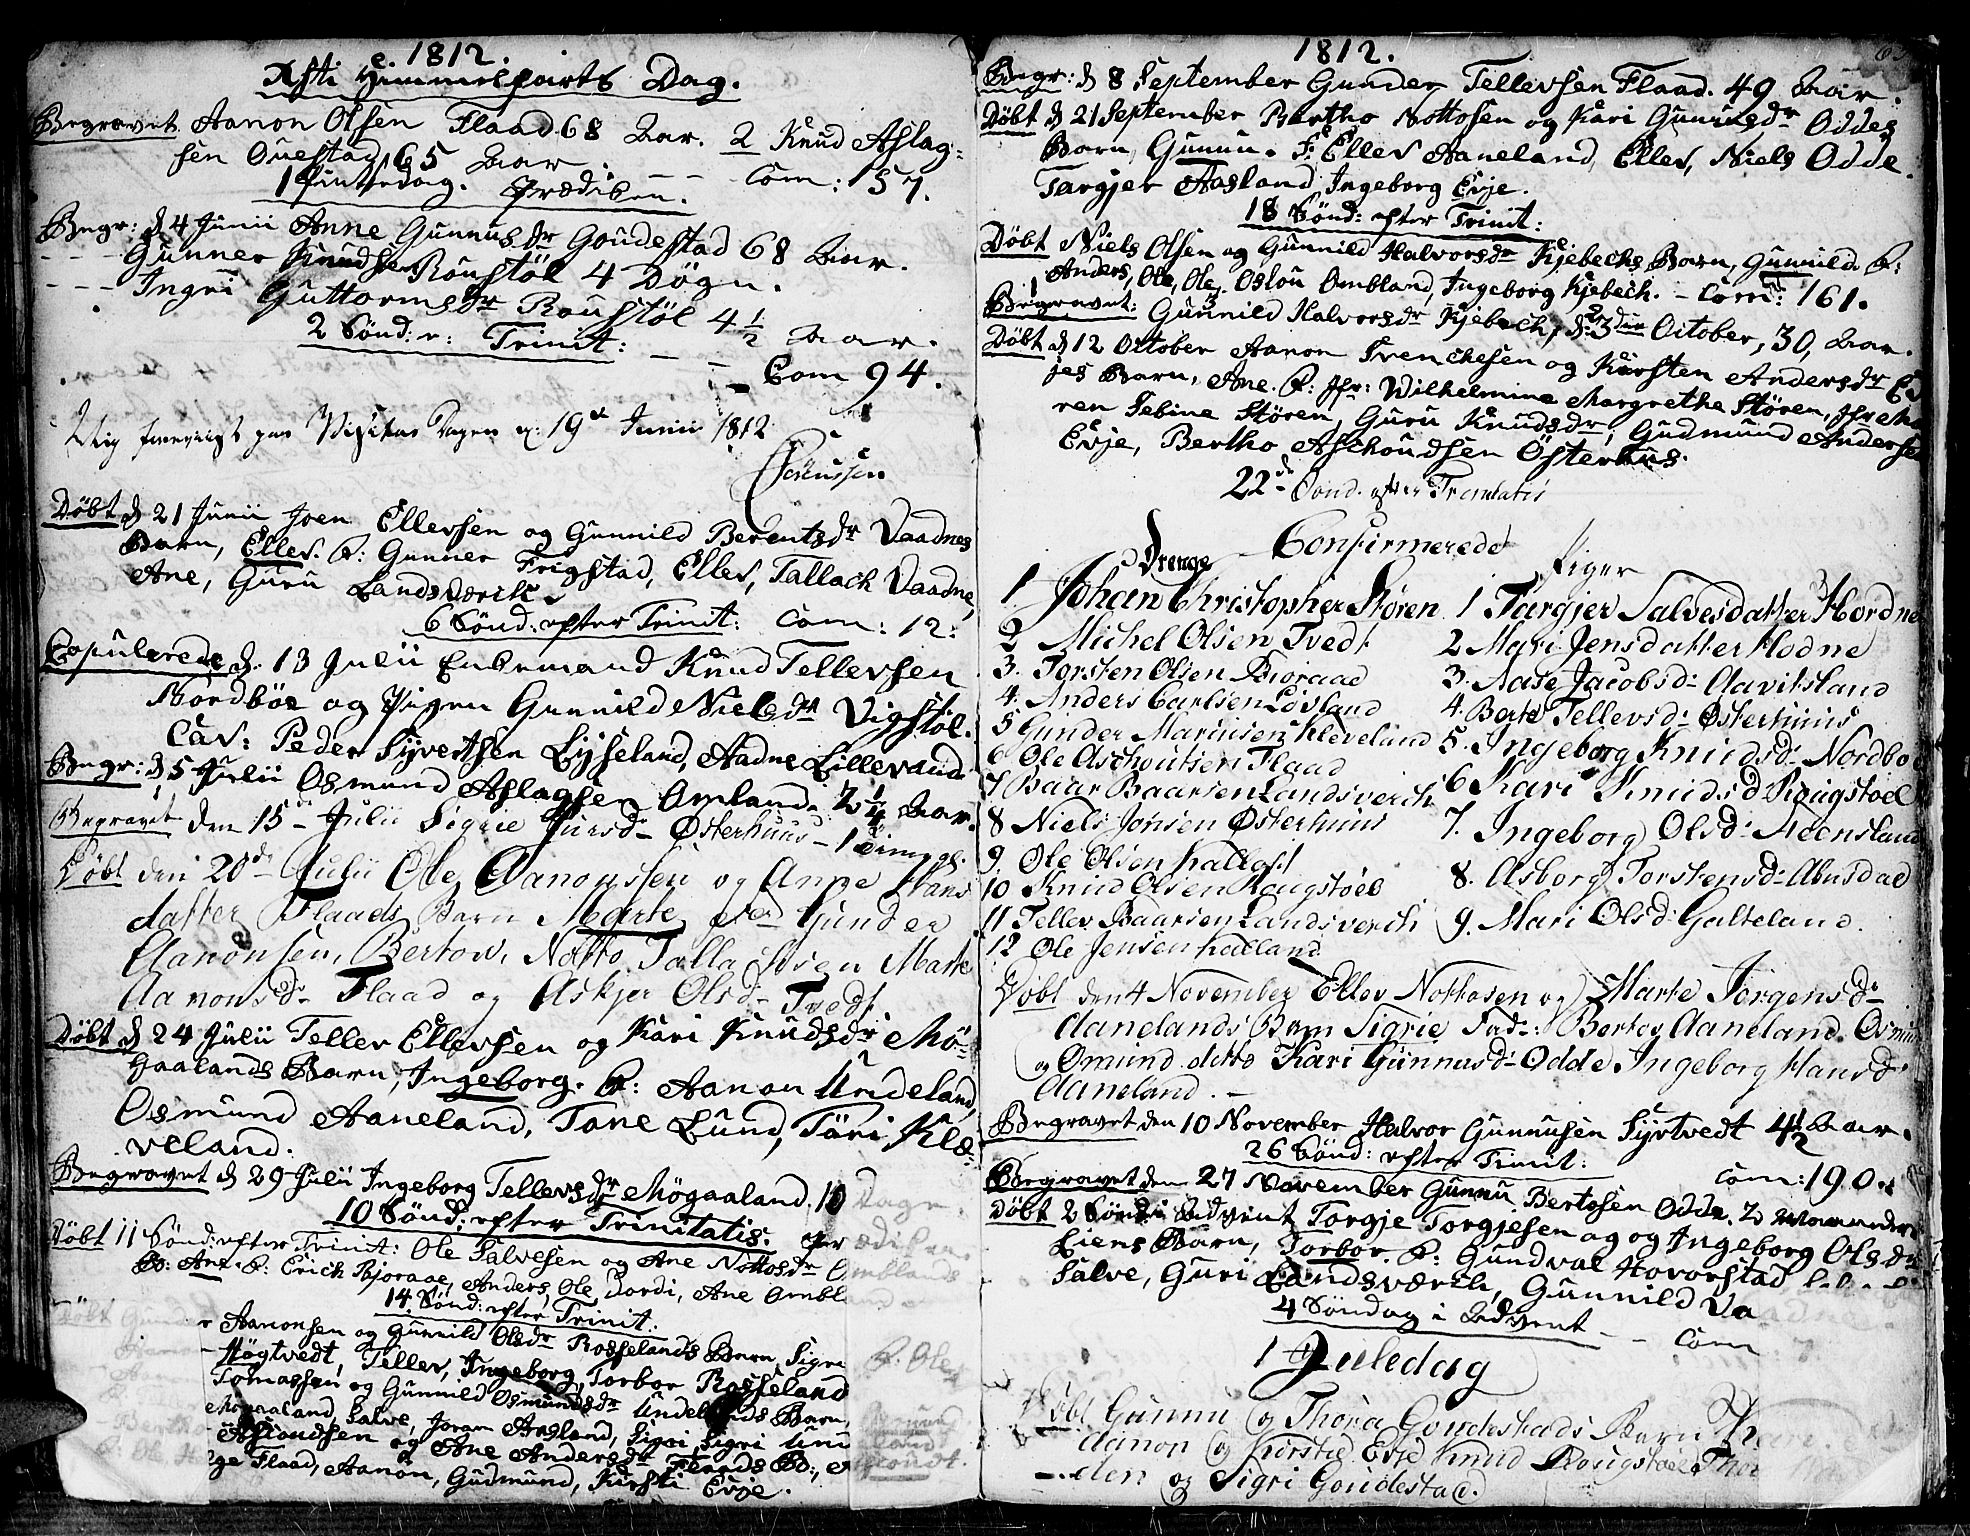 1812.
Xsti Himmelfarts Dag.
Begravet Aanon Olsen Flaad 68 Aar. 2 Knud Aslag-
sen Ouestad, 65 Aar. - - Com: 157.
1 Pintsedag. Prædiken.
Begr: d 4 Junii Anne Gunnusdr Goudestad 68 Aar.
- - - Gunner Knudsen Roustøl 4 Døgn.
- - - Ingri Guttormsdr Roustøl 4 1/2 Aar.
2 Sønd: e: Trinit: - - Com 94.
Mig foreviist paa Visitas Dagen d: 19de Junii 1812
Døbt d 21 Junii Joen Ellevsen og Gunnild Berentsdr Vaadnes
Barn, Ellev. F: Gunner Frigstad, Ellev, Tallach Vaadne,
Ane, Guru Landsværk.
6 Sønd: efter Trinit: Com: 12:
Copulerede d. 13 Julii Enkemand Knud Tellevsen
Nordbøe og Pigen Gunnild Nielsdr Vigstøl.
Cav: Peder Syvertsen Lysseland, Aadne Lillevand.
Begr: d 5 Julii Osmund Aslagsen Omland. 2 1/4 Aar.
Begravet den 15 Julii Sigrie Jursd- Østerhuus - 1
Døbt den 20de Julii Ole Aanonssen og Anne Hans
datter Flaads Barn Marte Fad Gunder
Aanonsen, Bertow, Notto Tallachsen Marte
Aanonsd- Flaad og Askjer Olsd- Tvedt
Døbt d 24 Julii Tellev Ellevsen og Kari Knudsdr Mö-
gaalands Barn, Ingeborg. F: Aanon Undeland,
Osmund Aaneland, Tone Lund, Töri Kle-
veland.
Begravet d 29 Julii Ingeborg Tellevsdr Mögaaland. 10 Dage.
10 Sønd: efter Trinitatis. Prædiken.
Døbt 11 Sønd: efter Trinit: Ole Salvesen og Ane Nottosdr Omblands
B: Ane. F: Erich Bjoraae, Anders, Ole, Dordi, Ane Ombland
14 Sønd: efter Trinit:
Aanonsen og Gunnild Olsdr Rosselands Barn, Sigri
Høgtvedt, Tellev, Ingeborg, Torbor Rosseland
Tomassen og Gunnild Osmundsdr Undelands Barn,
Mögaaland, Salve, Joran Aasland, Sigri, Sigri Und
Asloudsen og Ane Andersdr Flaads B:,
ge Flaad, Aanon, Gudmund, Kirsti Evje.
1812.
Begr: d 8 September Gunder Tellevsen Flaad. 49 Aar.
Døbt d 21 September Bertho Nottosen og Kari Gunnusdr Oddes
Barn, Gunnu. F: Ellev Aaneland, Ellev, Niels Odde.
Targjer Aasland, Ingeborg Evje.
18 Sønd: efter Trinit:
Døbt Niels Olsen og Gunnild Halvorsdr Kjebechs Barn, Gunnild. F:
Anders, Ole, Ole, Oslou Ombland, Ingeborg Kjebech. - Com: 161.
Begravet: Gunnild Halvorsdr Kjebech, d: 23de October, 30, Aar.
Døbt d 12 October Aanon Svenchesen og Kirsten Andersdr Ev
jes Barn, Ane. F: Jfr: Wilhelmine Margrethe Støren, Jfr Ma
ren Sebine Støren, Guru Knudsdr, Gudmund Andersen
Evje, Bertho Aschoudsen Österhus.
22de Sønd. efter Trinitatis
Confirmerede
Drenge
1 Johan Christopher Støren
2 Michel Olsen Tvedt
3. Torsten Olsen Bioraae
4. Anders Carlsen Løvland
5 Gunder Marinsen Kleveland
6 Ole Aschoutsen Flaad
7 Baar Baarsen Landsverch
8 Niels Jonsen Østerhuus
9. Ole Olsen
10 Knud Olsen Rougstøel
11 Tellev Baarsen Landsverch
12 Ole Jensen
Piger
1 Targjer Salvesdatter Hordne
2 Mari Jensdatter Hodne
3. Aase Jacobsd- Aavitsland
4. Berte Tellevsd- Østerhuus
5. Ingeborg Knudsd- Nordbø
6 Kari Knudsd Rougstoel
7. Ingeborg Olsd- Meensland
8. Asborg Torstensd- Abusdal
9. Mari Olsd: Galteland.
Døbt den 4 November Ellev Nottosen og Marte Jørgensd-
Aanelands Barn Sigrie Fad-: Bertow Aaneland. Osmun
og Omund ditto Kari Gunnusd- Odde Ingeborg Hansd
Aaneland. -
Begravet den 10 November Halvor Gunnusen Syrtvedt 4 1/2 Aar.
26 Sønd: efter Trinit: Com: 190.
Begravet den 27 November Gunnu Bertosen Odde. 2 Maaneder
Døbt 2 Sønd i Advent Torgje Torgjesen og Ingeborg Olsdr
Liens Barn, Torbor. F: Gundval Hovorstad
Salve, Guri Landsværch, Gunnild Va
4 Søndag i Advent - - Com
1 Juledag
Døbt Gunnu og Thora Goudestads Barn
Aanon og Kirsted Evje Knud Rougstøel Thor
den og Sigri Goudestad.